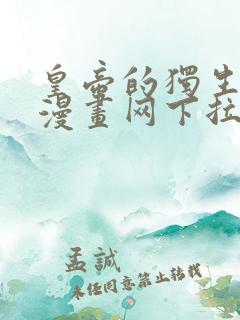 皇帝的獨生
漫畫网下拉
孟誠
未经同意禁止转载